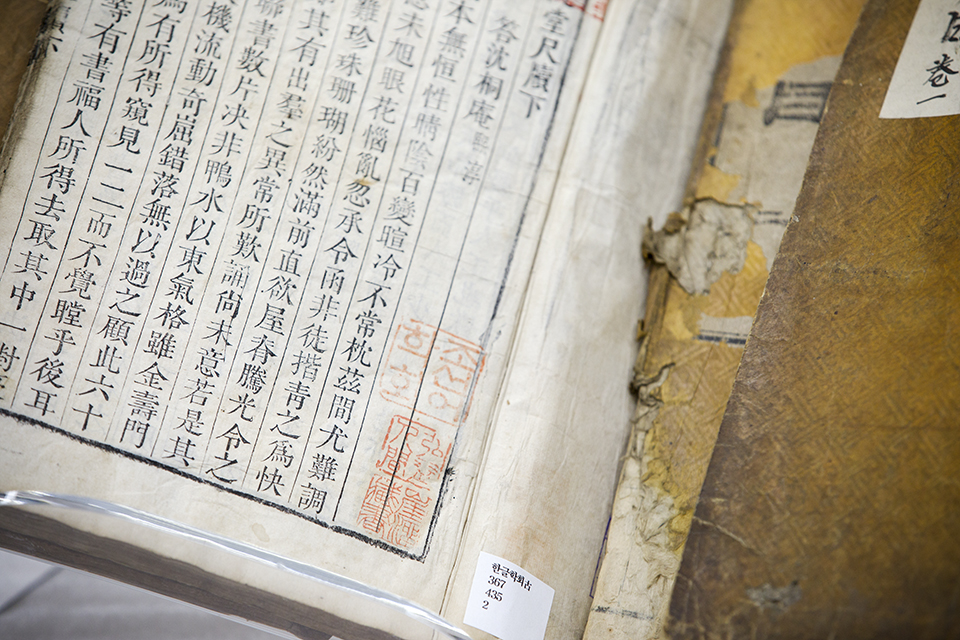 尺牘下
答沈桐庵
本無恒性晴陰百變暄冷不常枕茲間尤難調
未旭眼花惱亂忽承令函非徒揩靑之爲快
難珍珠珊瑚紛然滿前直欲屋脊騰光令之
其有出羣之異常所歎誦尙未意若是其
聯書數片决非鴨水以東氣格雖金壽門
機流動奇崛錯落無以過之顧此六十
爲有所得窺見一二而不覺瞠乎後耳
等有書福人所得去取其中一對
한글학회古
367
435
2
卷一